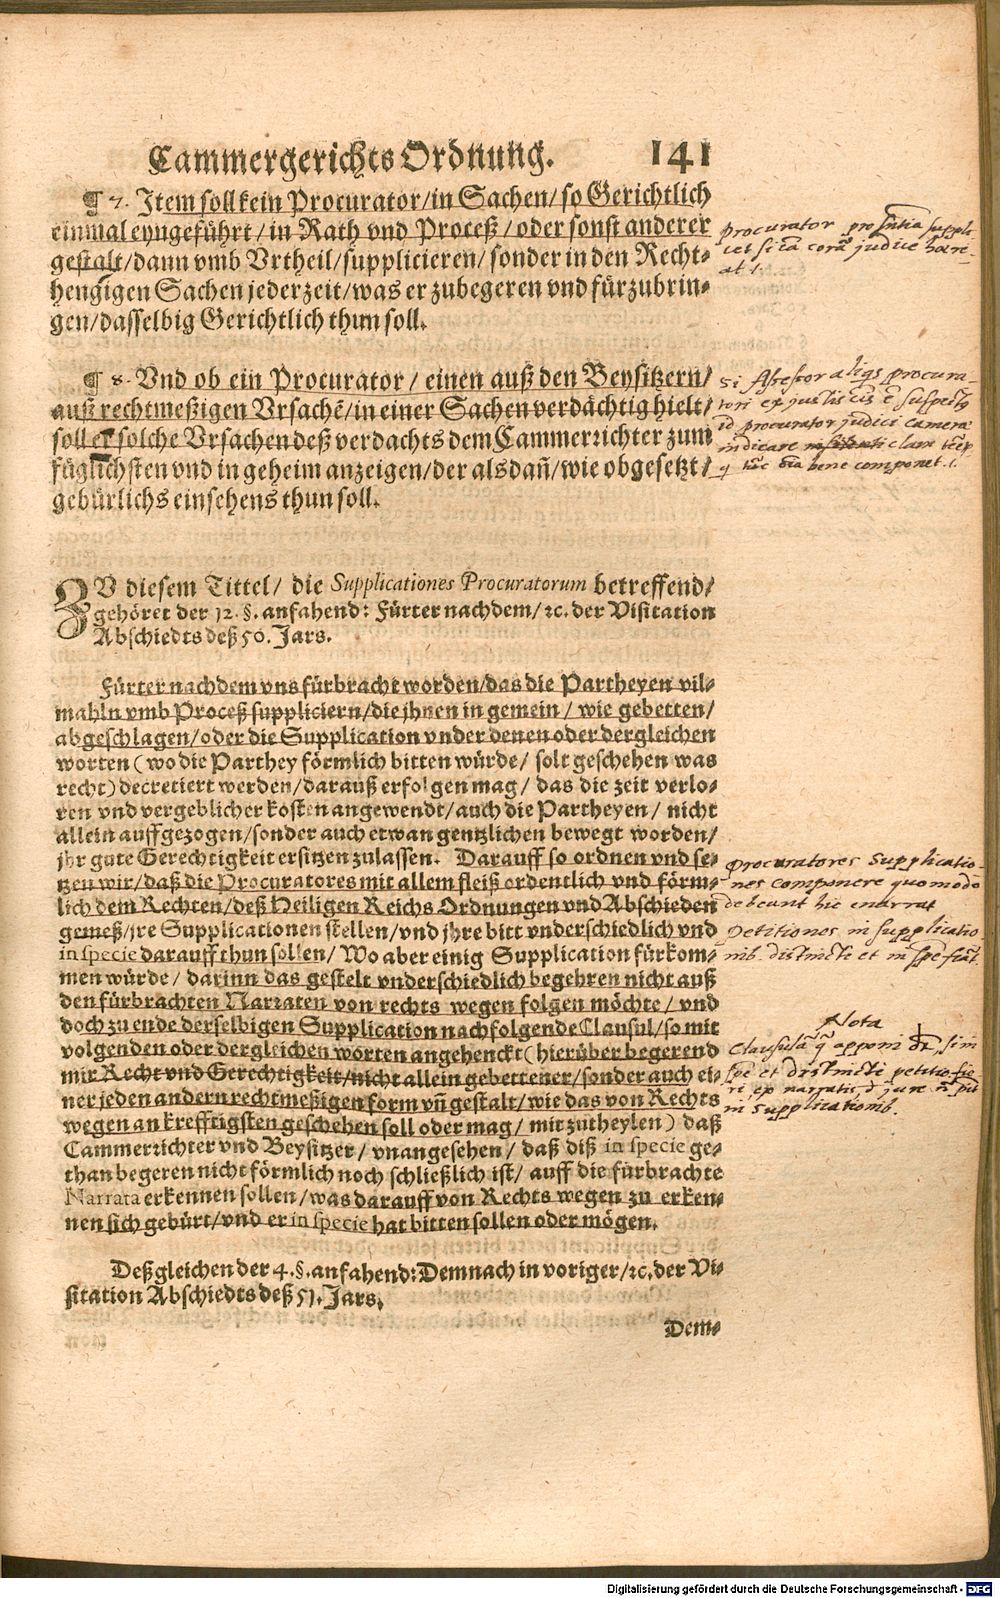 Cammergerichts Ordnung. 141
¶ 7. Item soll kein Procurator/in Sachen/so Gerichtlich
einmal eyngeführt/in Rath vnd Proceß/oder sonst anderer
gestalt/dann vmb Vrtheil/supplicieren/sonder in den Recht-
hengigen Sachen jederzeit/was er zubegeren vnd fürzubrin-
gen/dasselbig Gerichtlich thun soll.
¶ 8. Vnd ob ein Procurator/einen auß den Beysitzern/
auß rechtmeßigen Vrsachē/in einer Sachen verdächtig hielt/
soll er solche Vrsachen deß verdachts dem Cammerrichter zum
füglichsten vnd in geheim anzeigen/der alsdañ/wie obgesetzt/
gebürlichs einsehens thun soll.
ZV diesem Tittel/ die Supplicationes Procuratorum betreffend/
gehöret der 12. §. anfahend: Fürter nachdem/ꝛc. der Visitation
Abschiedts deß 50. Jars.
Fürter nachdem vns fürbracht worden/das die Partheyen vil-
mahln vmb Proceß suppliciern/die jhnen in gemein/ wie gebetten/
abgeschlagen/oder die Supplication vnder denen oder dergleichen
worten (wo die Parthey förmlich bitten würde/ solt geschehen was
recht) decretiert werden/darauß erfolgen mag/ das die zeit verlo-
ren vnd vergeblicher kosten angewendt/auch die Partheyen/ nicht
allein auffgezogen/sonder auch etwan gentzlichen bewegt worden/
jhr gute Gerechtigkeit ersitzen zulassen. Darauff so ordnen vnd se-
tzen wir/daß die Procuratores mit allem fleiß ordentlich vnd förm-
lich dem Rechten/deß Heiligen Reichs Ordnungen vnd Abschieden
gemeß/jre Supplicationen stellen/vnd jhre bitt vnderschiedlich vnd
in specie darauff thun sollen/ Wo aber einig Supplication fürkom-
men würde/ darinn das gestelt vnderschiedlich begehren nicht auß
den fürbrachten Narraten von rechts wegen folgen möchte/ vnd
doch zu ende derselbigen Supplication nachfolgende Clausul/so mit
volgenden oder dergleichen worten angehenckt (hierüber begerend
mir Recht vnd Gerechtigkeit/nicht allein gebettener/sonder auch ei-
ner jeden andern rechtmeßigen form vñ gestalt/wie das von Rechts
wegen an krefftigsten geschehen soll oder mag/ mit zutheylen) daß
Cammerrichter vnd Beysitzer/ vnangesehen/ daß diß in specie ge-
than begeren nicht förmlich noch schließlich ist/ auff die fürbrachte
Narrata erkennen sollen/was darauff von Rechts wegen zu erken-
nen sich gebürt/vnd er in specie hat bitten sollen oder mögen.
Deßgleichen der 4. §. anfahend: Demnach in voriger/ꝛc. der Vi-
sitation Abschiedts deß 51. Jars.
Dem-
procurator
corā judice
si Assessor aliqs procura-
tori ex justis
id procurator judici camerae
indicare clam
bene componet.
Procuratores Supplicatio-
nes componere quomodo
debeant hic enarrat
petitiones in supplicatio
nib. distincte et in
Nota
Clausula apponi
et distincte petitio
narratis jure
in supplicationib.
Digitalisierung gefördert durch die Deutsche Forschungsgemeinschaft - DFG